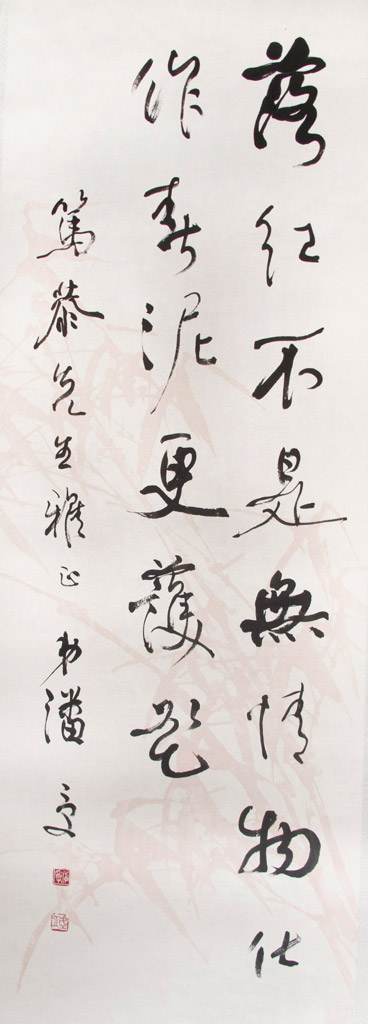 落紅不是無情物化
作春泥更護花
篤恭先生雅正 弟潘受